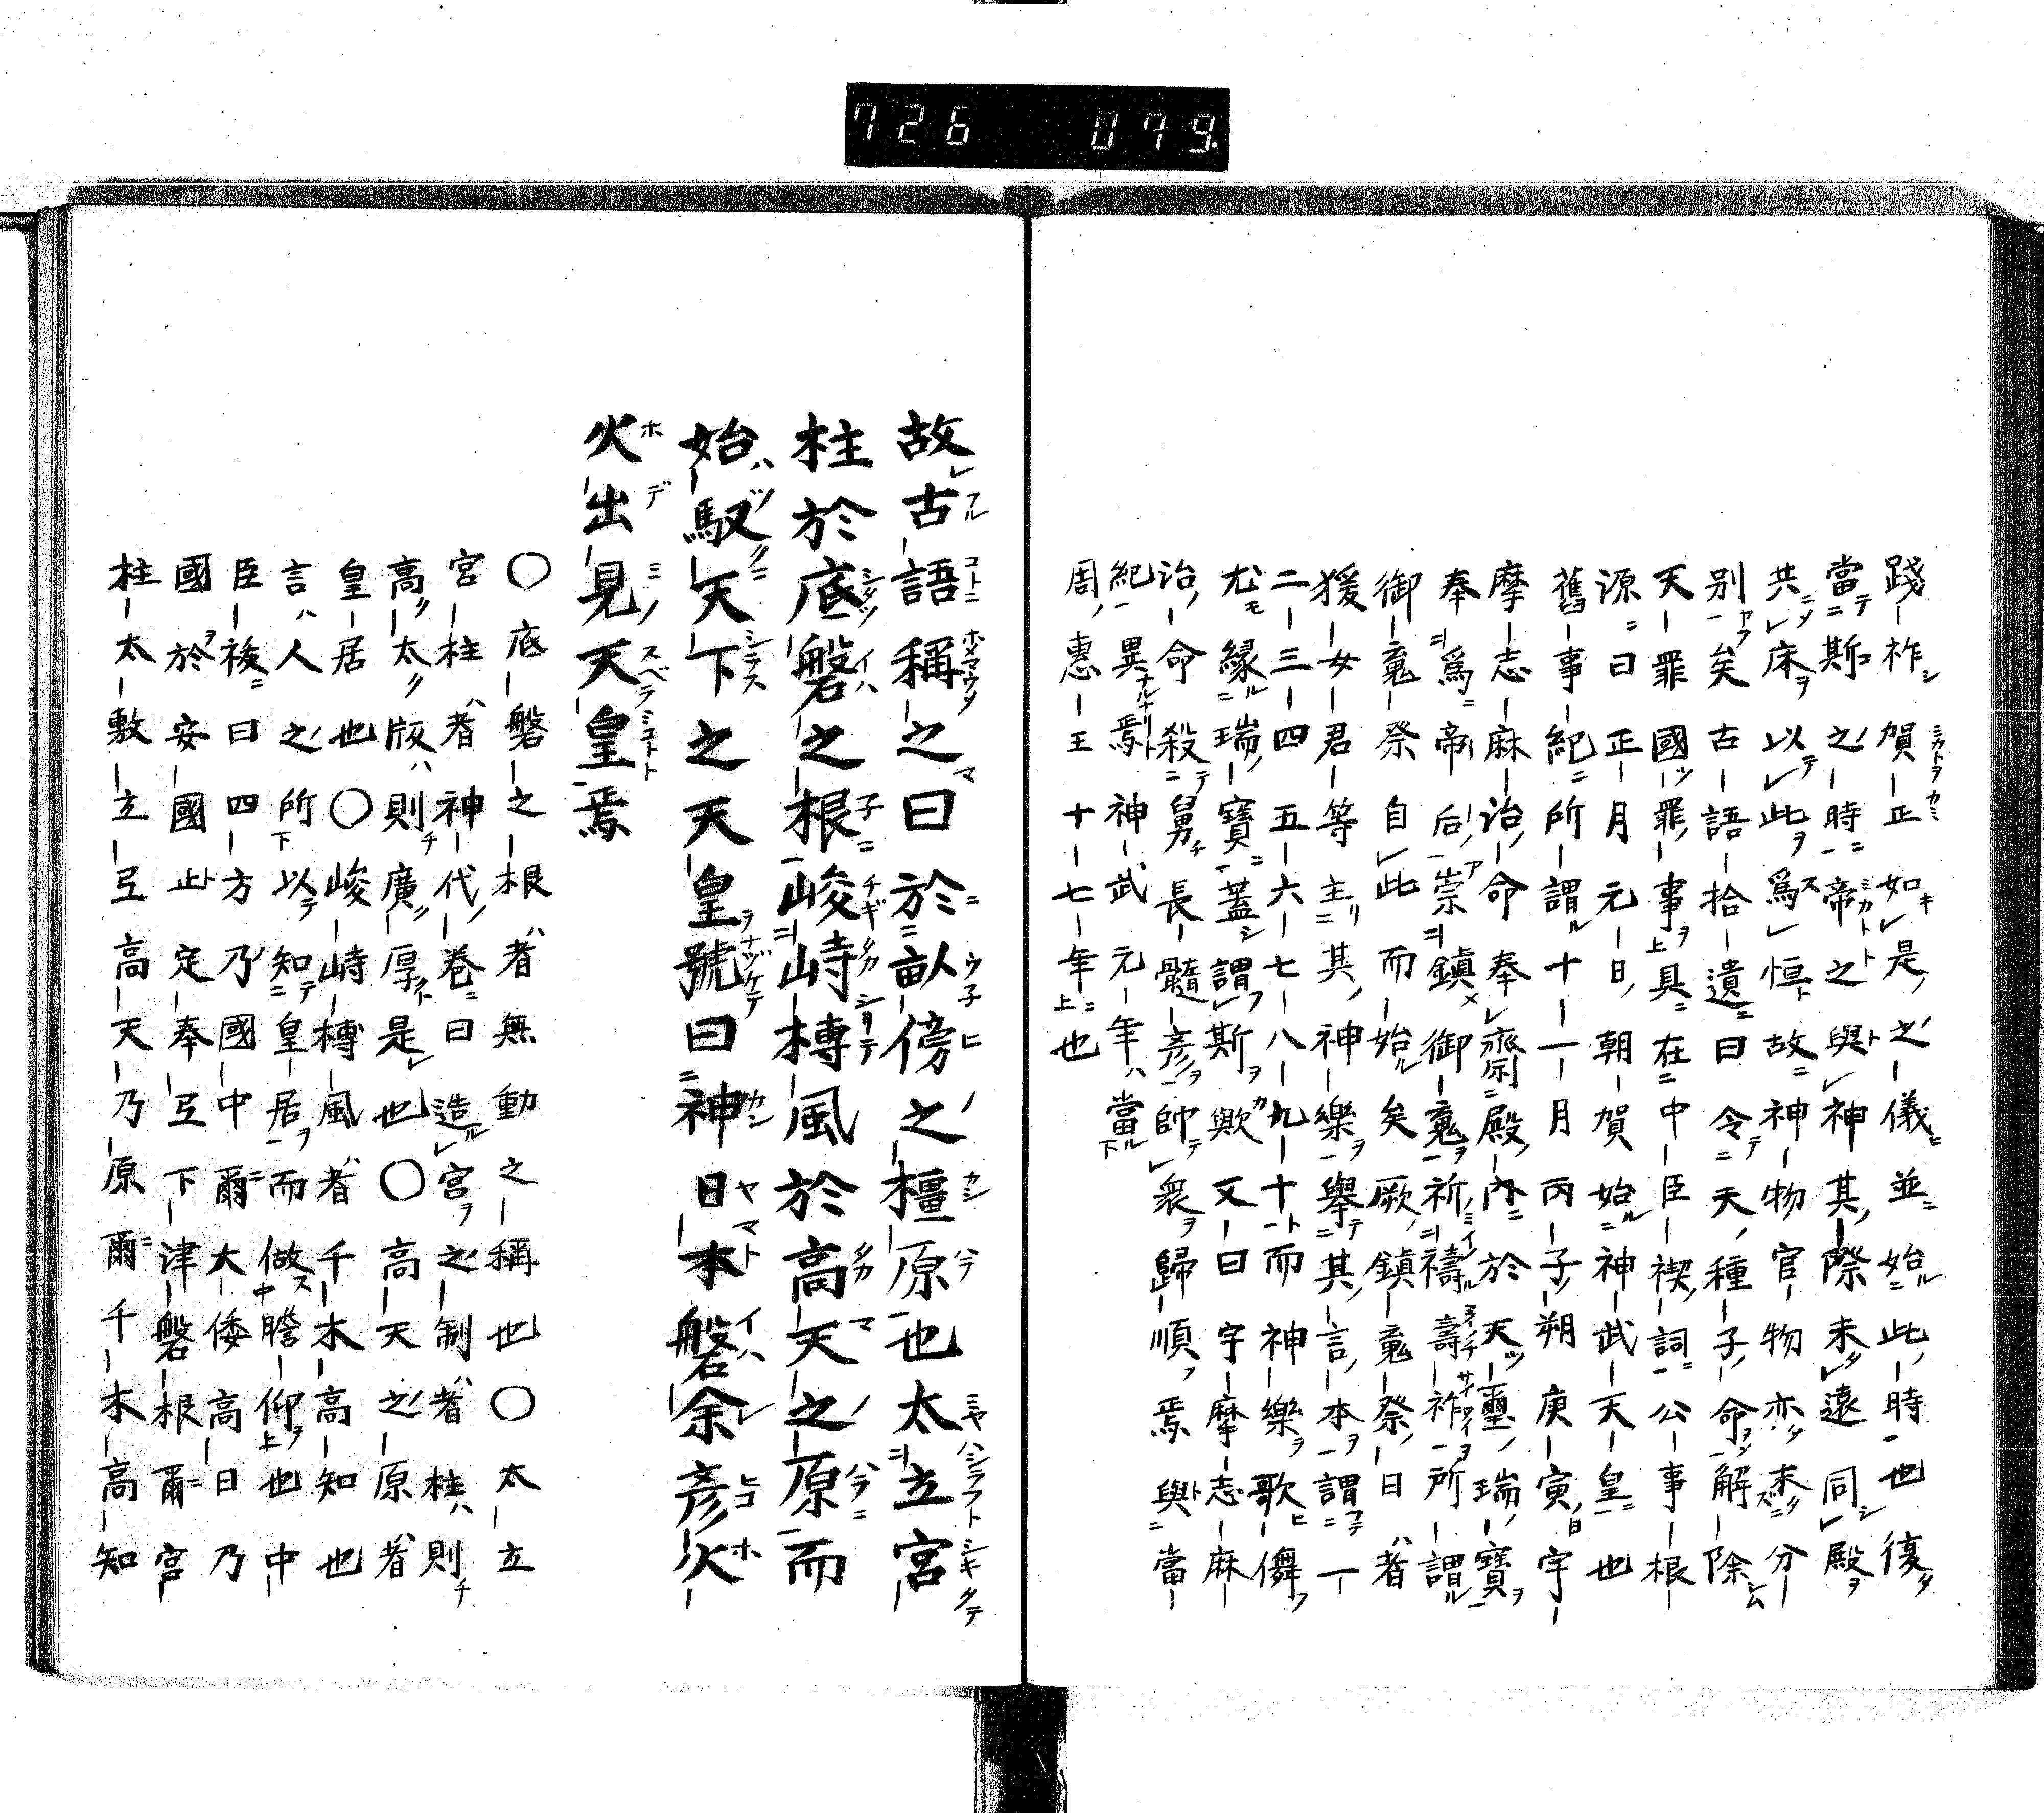 726 079.
踐祚賀正如是之儀並始此時也復
當斯之時帝之與神其際未遠同殿
共床以此爲恒故神物官物亦未分
別矣古語拾遺曰令天種子命解除
天罪國罪事具在中臣禊詞公事根
源曰正月元日朝賀始神武天皇也
舊事紀所謂十一月丙子朔庚寅日宇
摩志麻治命奉齋殿內於天璽瑞寶
奉爲帝后崇鎮御䰟祈禱壽祚所謂
御䰟祭自此而始矣厥鎮䰟祭日者
猨女君等主其神樂擧其言本謂一
二三四五六七八九十而神樂歌儛
尤緣瑞寶蓋謂斯歟又曰宇摩志麻
治命殺舅長髓彥帥衆歸順焉與當
紀異焉神武元年當
周惠王十七年也
故古語稱之曰於畝傍之橿原也太立宮
柱於底磐之根峻峙榑風於高天之原而
始馭天下之天皇號曰神日本磐余彥火
火出見天皇焉
〇底磐之根者無動之稱也〇太立
宮柱者神代卷曰造宮之制者柱則
高太版則廣厚是也〇高天之原者
皇居也〇峻峙榑風者千木高知也
言人之所以知皇居而做瞻仰也中
臣後曰四方乃國中爾大倭高日乃
國於安國止定奉弖下津磐根爾宮
柱太敷立弖高天乃原爾千木高知